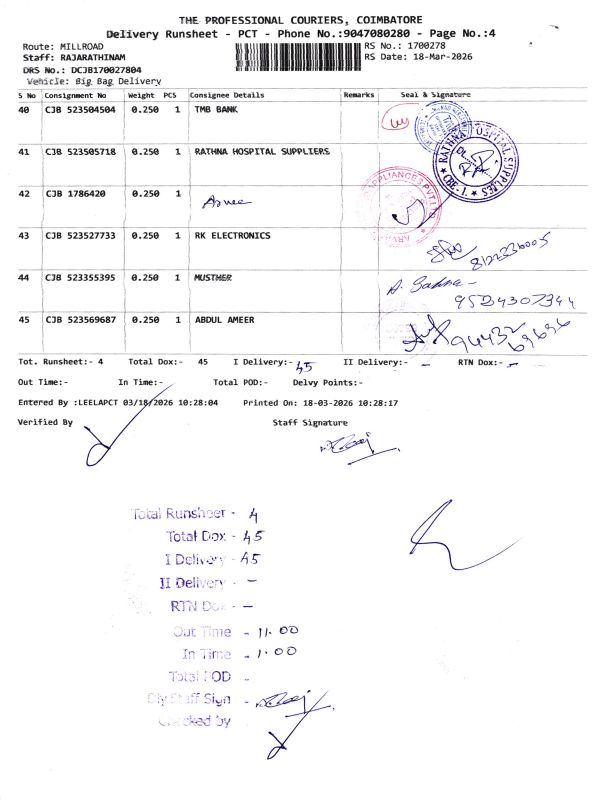 THE PROFESSIONAL COURIERS, COIMBATORE
Delivery Runsheet - PCT - Phone No.:9047080280 - Page No.:4
Route: MILLROAD
RS No.: 1700278
Staff: RAJARATHINAM
RS Date: 18-Mar-2026
DRS No.: DCJB170027804
Vehicle: Big Bag Delivery
S No Consignment No Weight PCS Consignee Details Remarks Seal & Signature
40 CJB 523504504 0.250 1 TMB BANK
41 CJB 523505718 0.250 1 RATHNA HOSPITAL SUPPLIERS
RATHNA HOSPITAL SUPPLIES
CBE-1.
42 CJB 1786420 0.250 1
APPLIANCES PVT LTD
43 CJB 523527733 0.250 1 RK ELECTRONICS
8122336005
44 CJB 523355395 0.250 1 MUSTHER
9524307344
45 CJB 523569687 0.250 1 ABDUL AMEER
94432
69696
Tot. Runsheet:- 4 Total Dox:- 45 I Delivery:- 45 II Delivery:- - RTN Dox:- -
Out Time:- In Time:- Total POD:- Delvy Points:-
Entered By :LEELAPCT 03/18/2026 10:28:04 Printed On: 18-03-2026 10:28:17
Verified By Staff Signature
Total Runsheet - 4
Total Dox - 45
I Delivery - 45
II Delivery - -
RTN Dox - -
Out Time - 11.00
In Time - 1.00
Total POD -
Dly.Staff Sign -
Checked by